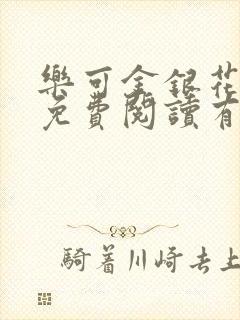 樂可金銀花
免費閱讀有
騎着川崎去上